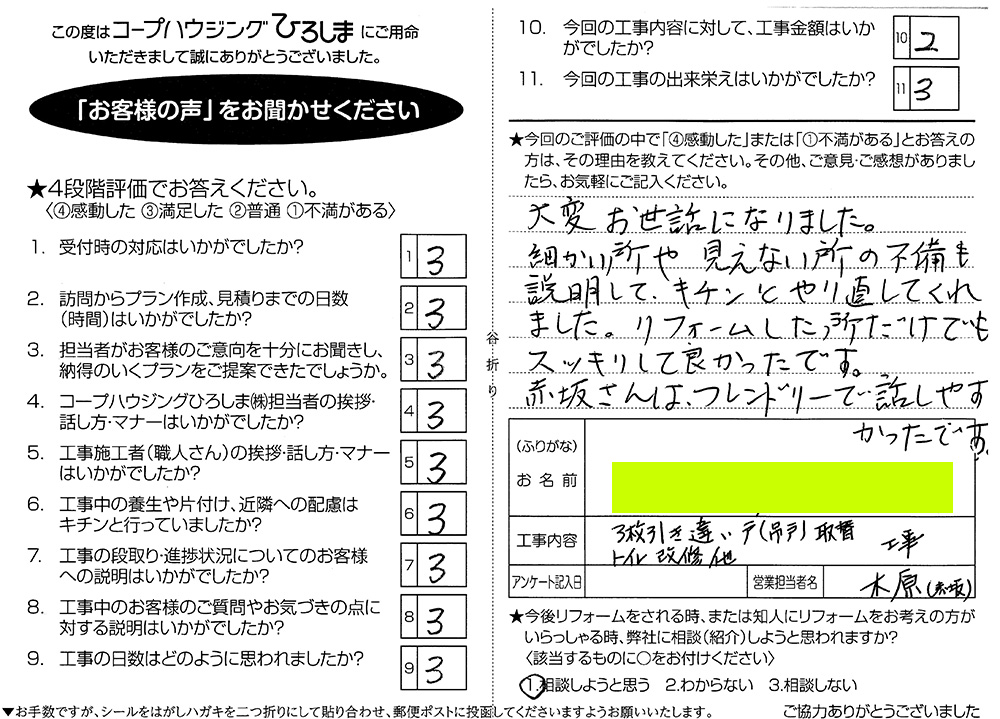 この度はコープハウジングひろしまにご用命
いただきまして誠にありがとうございました。
「お客様の声」をお聞かせください
★4段階評価でお答えください。
〈④感動した ③満足した ②普通 ①不満がある〉
1. 受付時の対応はいかがでしたか?
1 3
2. 訪問からプラン作成、見積りまでの日数
(時間)はいかがでしたか?
2 3
3. 担当者がお客様のご意向を十分にお聞きし、
納得のいくプランをご提案できたでしょうか。
3 3
4. コープハウジングひろしま㈱担当者の挨拶・
話し方・マナーはいかがでしたか?
4 3
5. 工事施工者(職人さん)の挨拶・話し方・マナー
はいかがでしたか?
5 3
6. 工事中の養生や片付け、近隣への配慮は
キチンと行っていましたか?
6 3
7. 工事の段取り・進捗状況についてのお客様
への説明はいかがでしたか?
7 3
8. 工事中のお客様のご質問やお気づきの点に
対する説明はいかがでしたか?
8 3
9. 工事の日数はどのように思われましたか?
9 3
▼お手数ですが、シールをはがしハガキを二つ折りにして貼り合わせ、郵便ポストに投函してくださいますようお願いいたします。
谷折り
10. 今回の工事内容に対して、工事金額はいか
がでしたか?
10 2
11. 今回の工事の出来栄えはいかがでしたか?
11 3
★今回のご評価の中で「④感動した」または「①不満がある」とお答えの
方は、その理由を教えてください。その他、ご意見・ご感想がありまし
たら、お気軽にご記入ください。
大変お世話になりました。
細かい所や見えない所の不備も
説明して、キチンとやり直してくれ
ました。リフォームした所だけでも
スッキリして良かったです。
赤坂さんは、フレンドリーで話しやす
かったです。
(ふりがな)
お名前
工事内容
3枚引き違い戸(吊戸)取替
トイレ改修他 工事
アンケート記入日
営業担当者名 木原(赤坂)
★今後リフォームをされる時、または知人にリフォームをお考えの方が
いらっしゃる時、弊社に相談(紹介)しようと思われますか?
〈該当するものに○をお付けください〉
1.相談しようと思う 2.わからない 3.相談しない
ご協力ありがとうございました